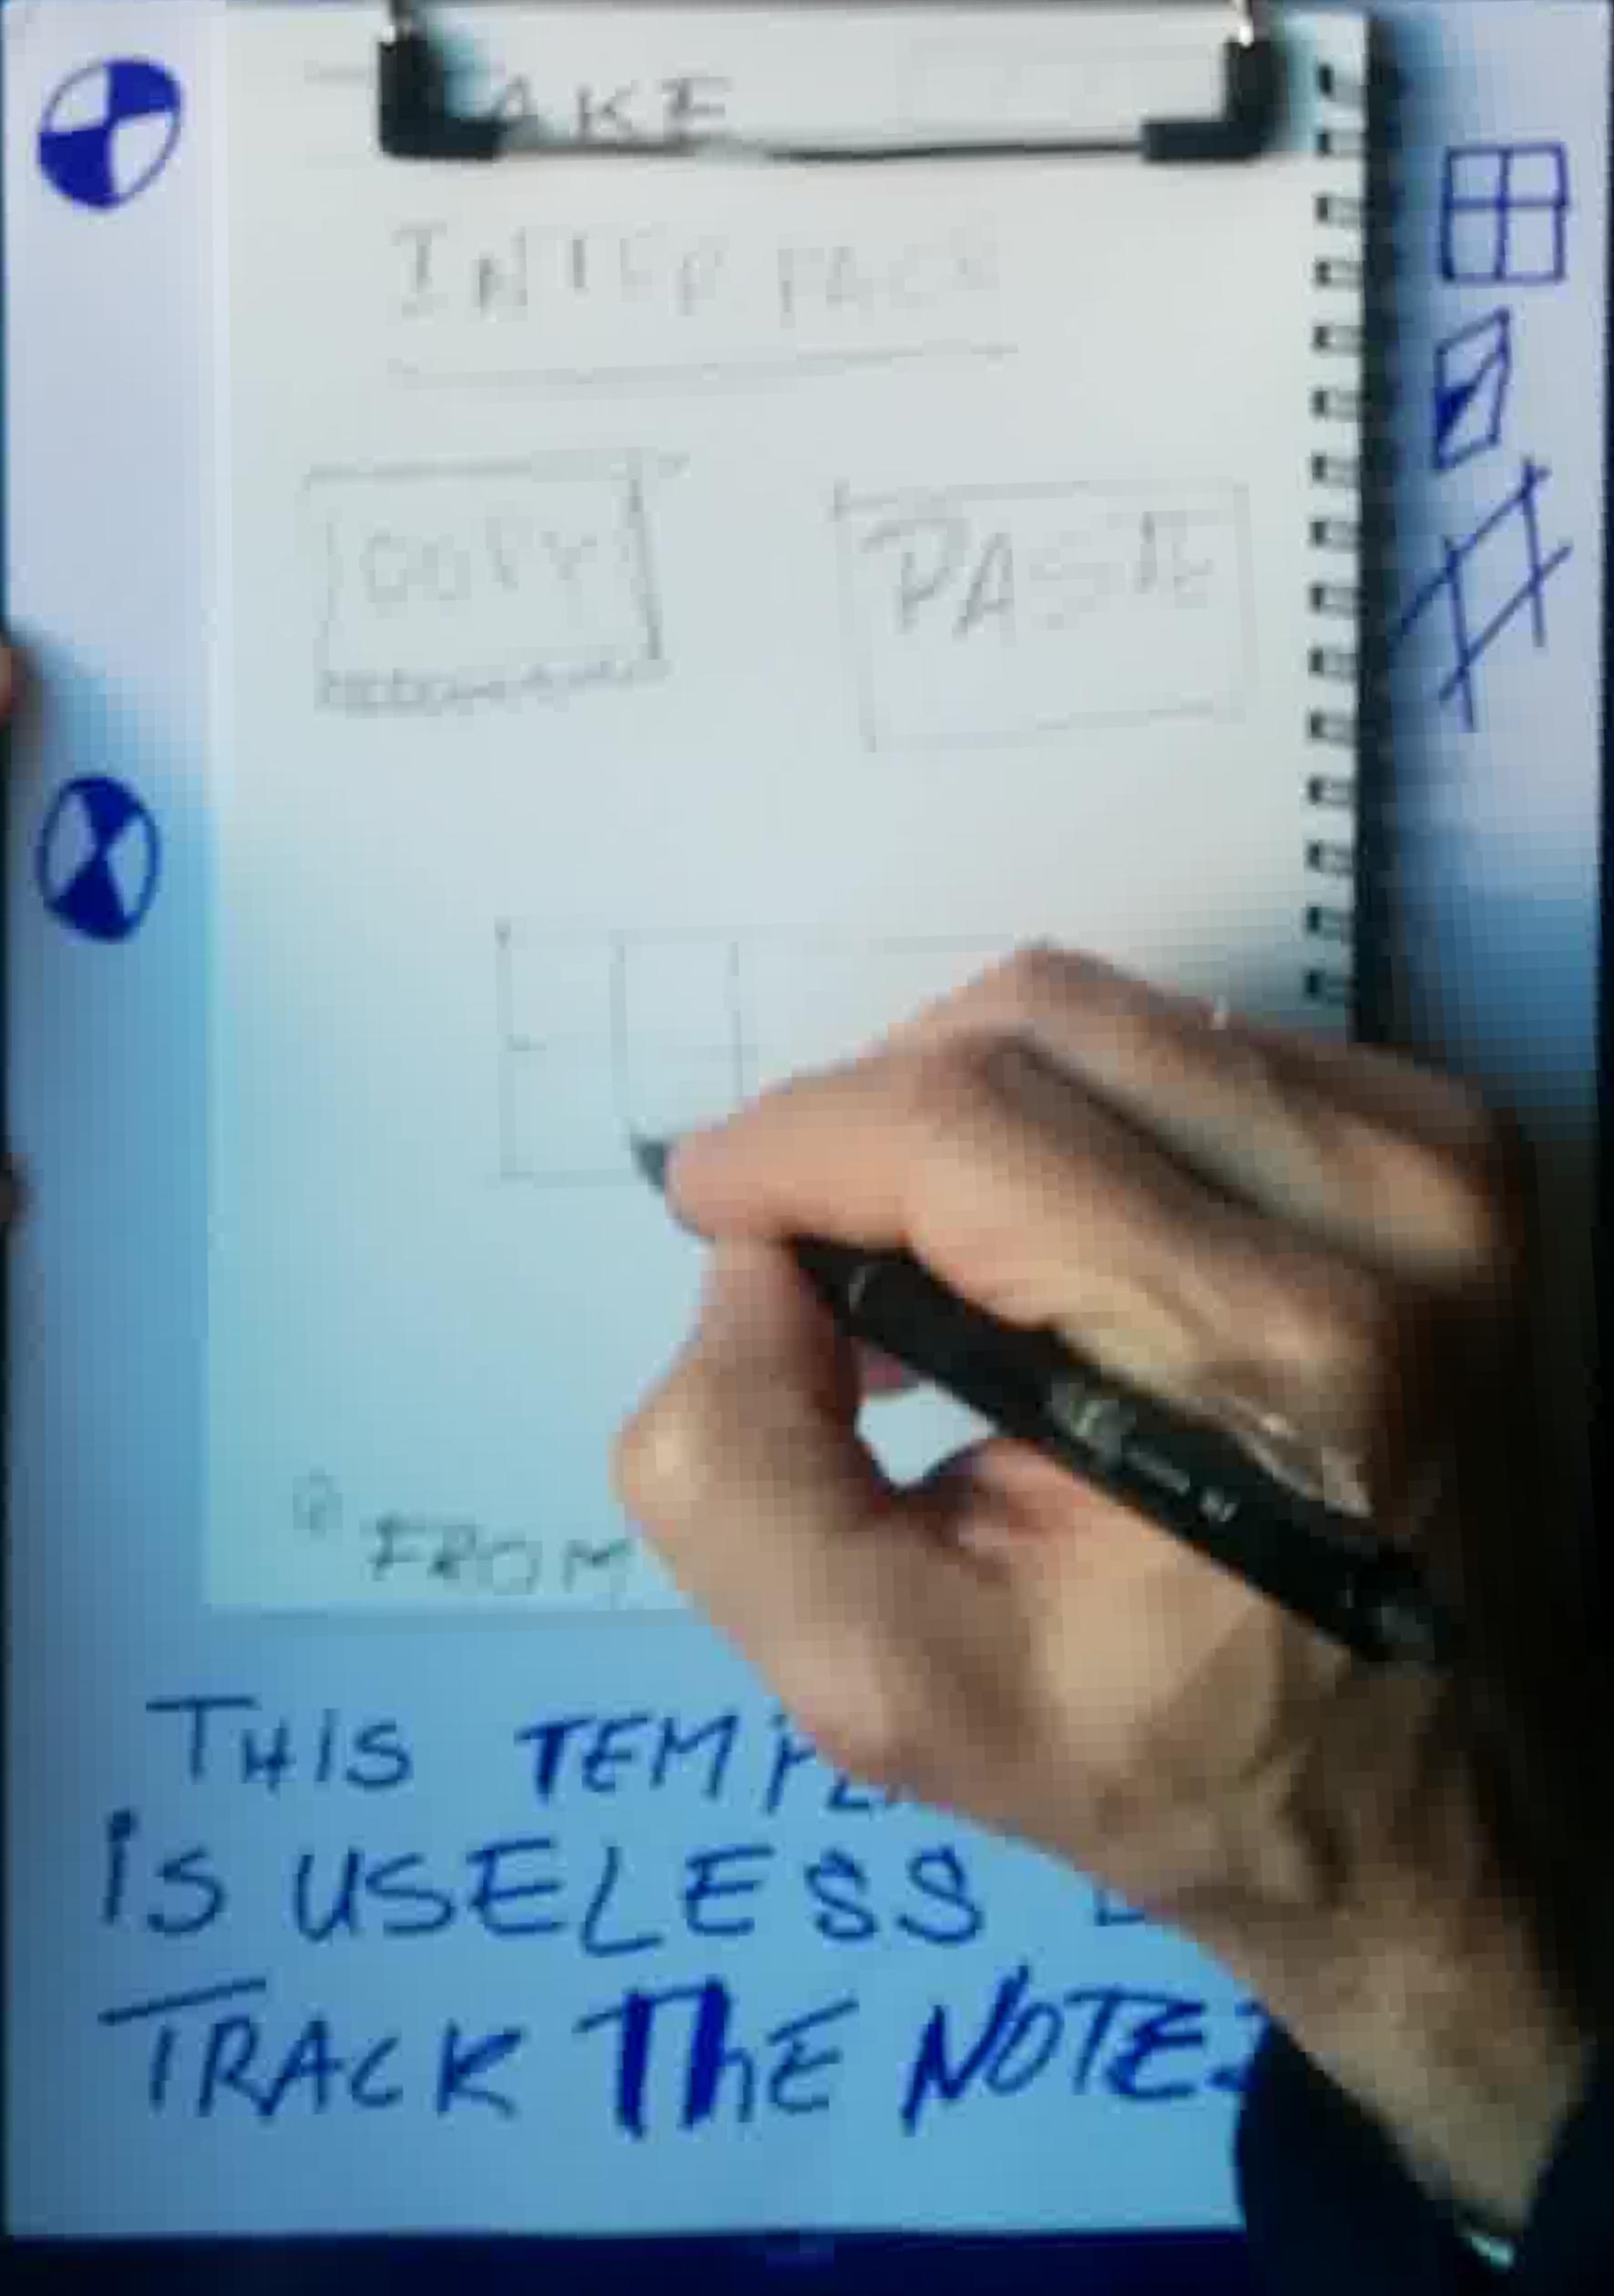 AKE
INTERFACE
COPY
PASTE
FROM
THIS
iS USELESS
TRACK ThE NOTES